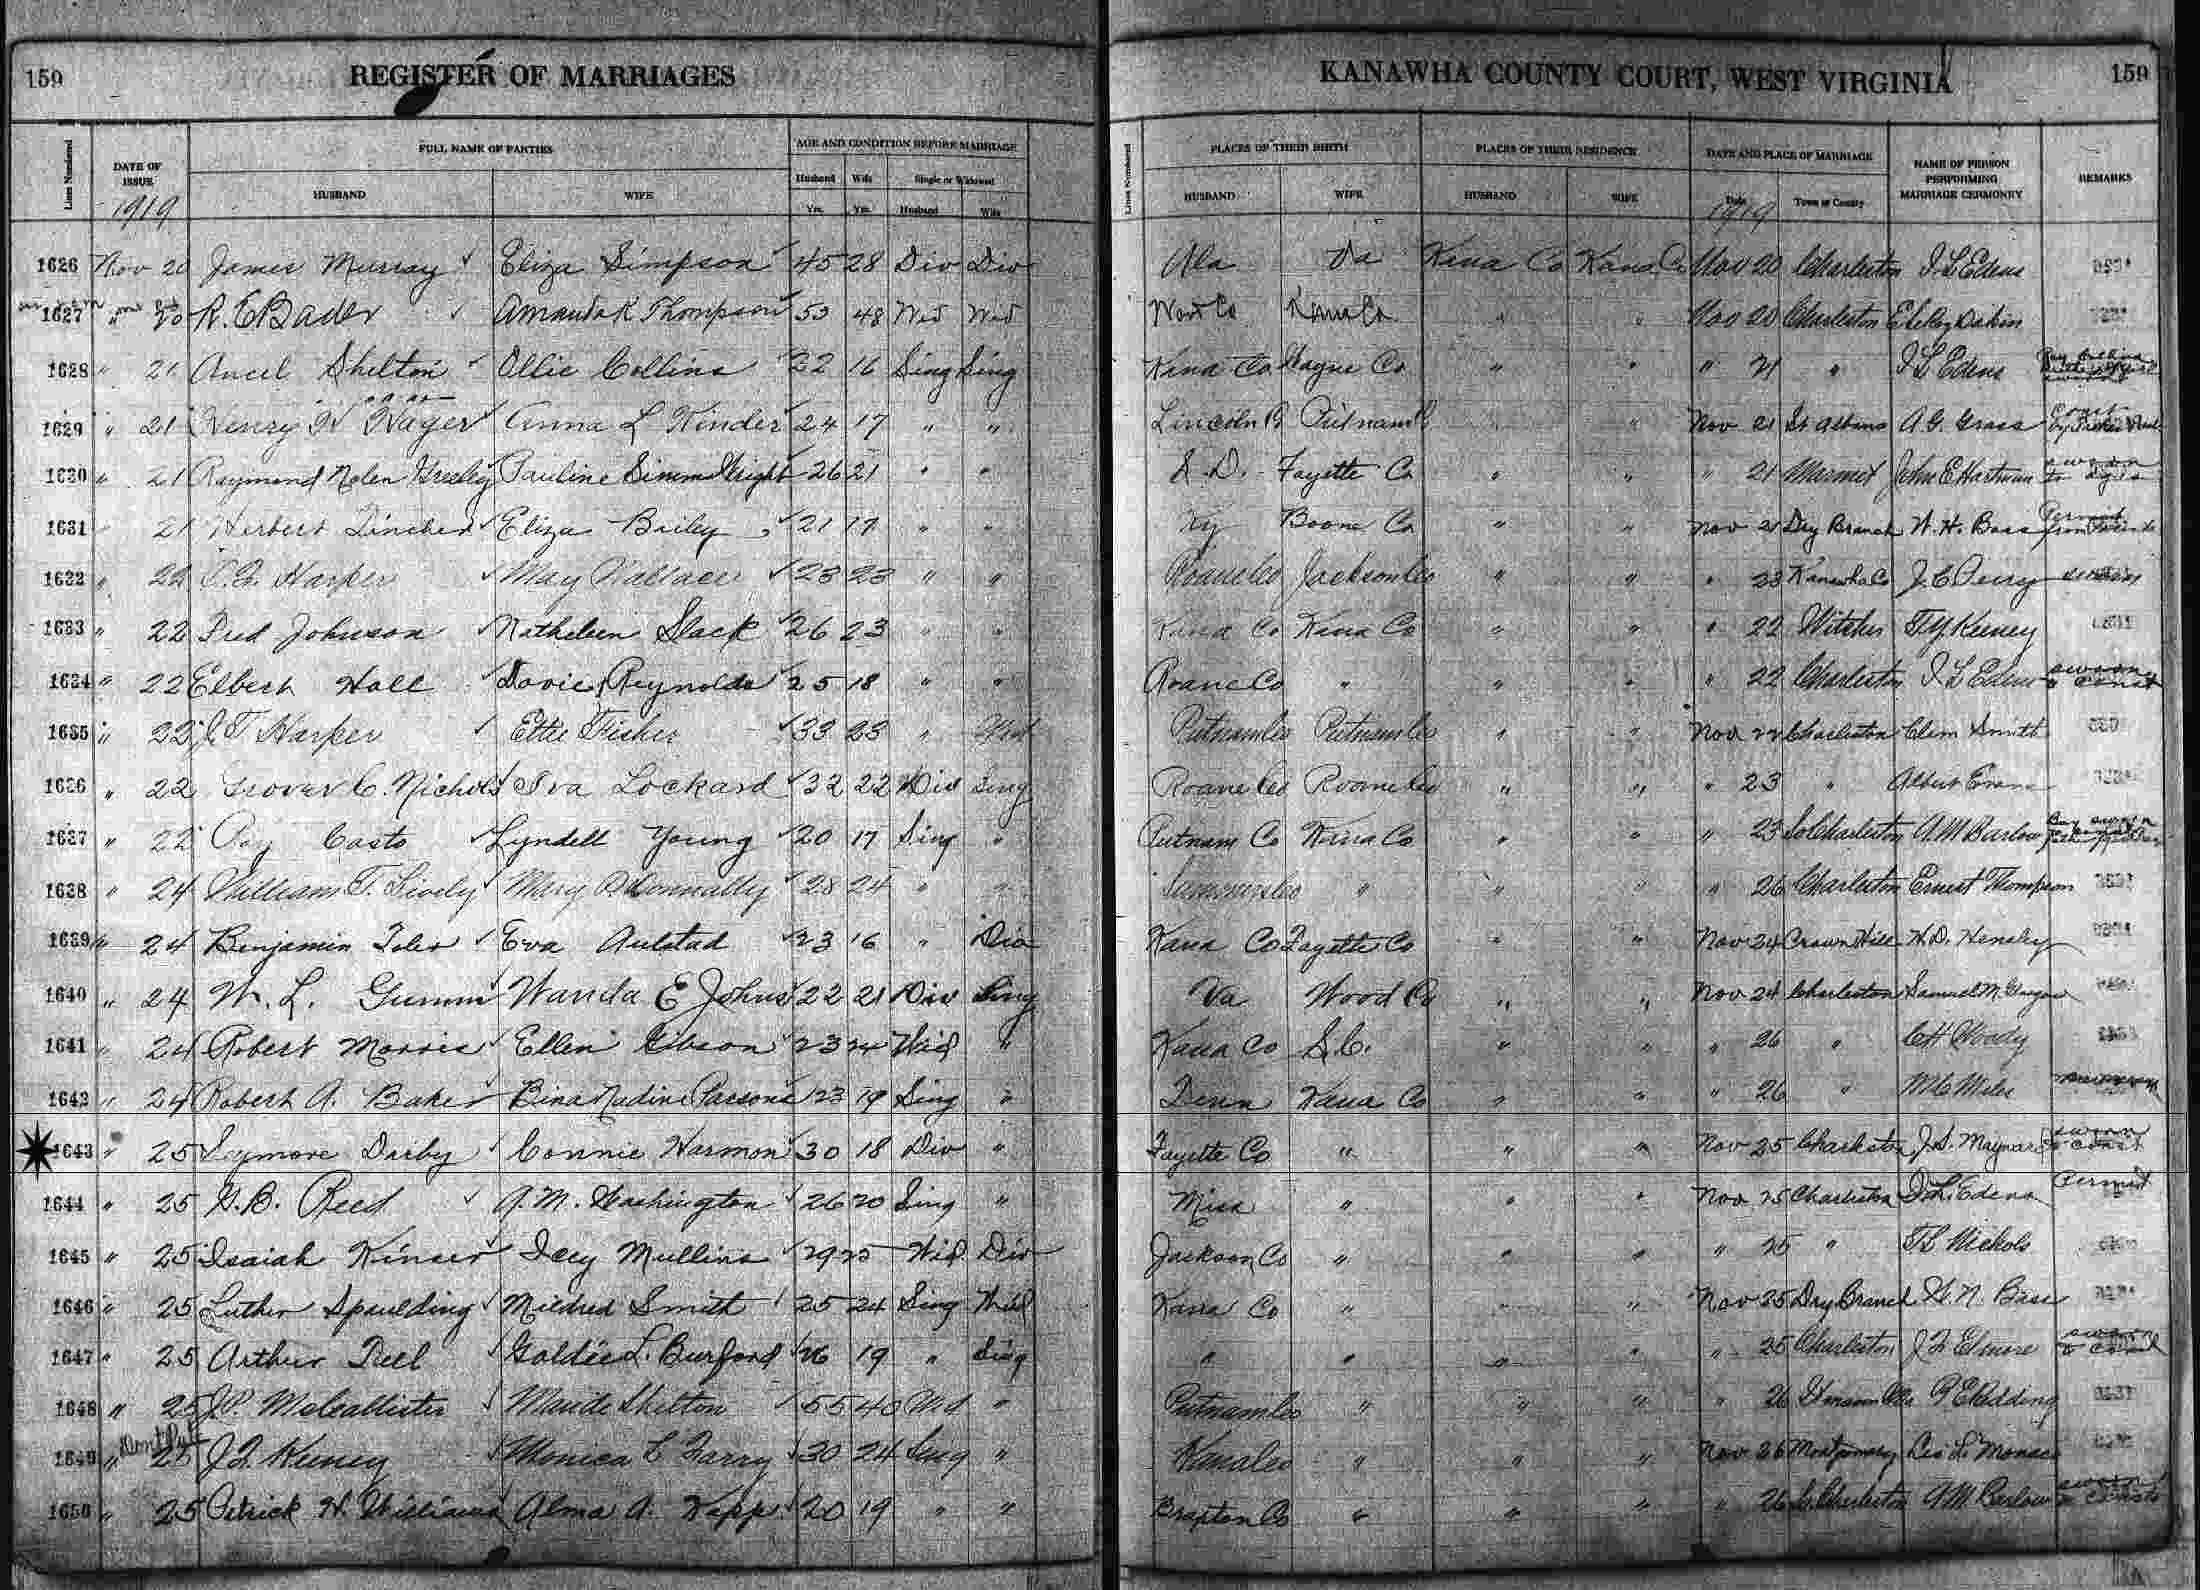 159 REGISTER OF MARRIAGES KANAWHA COUNTY COURT, WEST VIRGINIA 159
Lines Numbered DATE OF ISSUE FULL NAME OF PARTIES AGE AND CONDITION BEFORE MARRIAGE Lines Numbered PLACES OF THEIR BIRTH PLACES OF THEIR RESIDENCE DATE AND PLACE OF MARRIAGE NAME OF PERSON PERFORMING MARRIAGE CERMONRY REMARKS
HUSBAND WIFE Husband Wife Single or Widowed HUSBAND WIFE HUSBAND WIFE Date Town or County
1919 Yrs. Yrs. Husband Wife 1919
1626 Nov 20 James Murray Eliza Simpson 45 28 Div Div Ala Va Kana Co Kana Co Nov 20 Charleston I L Edens
1627 " 20 R. E Bader Amanda K Thompson 53 48 Wid Wid Wood Co Kana Co " " Nov 20 Charleston Dakin
1628 " 21 Ancel Shelton Ollie Collins 22 16 Sing Sing Kana Co Wayne Co " " " 21 " I L Edens
1629 " 21 Henry H Hager Anna L Kinder 24 17 " " Lincoln Putnam Nov 21 St Albans A. G. Grass
1630 " 21 Raymond Nolen Pauline Simms Wright 26 21 " " S. D. Fayette Co " " " 21 Marmet John E Hartman sworn to
1631 " 21 Herbert Tincher Eliza Bailey 21 17 " " Ky Boone Co " " Nov 21 Dry Branch W. H. Bass Permit from
1632 " 22 Harper May Wallace 23 23 " " Roane Co Jackson Co " " " 23 Kanawha Co J. C. Perry
1633 " 22 Fred Johnson Katheleen Slack 26 23 " " Kana Co Kana Co " " " 22 Witcher T Y Keeney
1634 " 22 Elbert Hall Dovie Reynolds 25 18 " " Roane Co " " " " 22 Charleston I L Edens sworn to const
1635 " 22 J. T Harper Ettie Fisher 33 23 " Wid Putnam Co Putnam Co " " Nov 22 Charleston Clem Smith
1636 " 22 Grover C. Nichols Iva Lockard 32 22 Div Sing Roane Co Roane Co " " " 23 " Albert Evans
1637 " 22 Roy Casto Lyndell Young 20 17 Sing " Putnam Co Kana Co " " " 23 So Charleston A. M Barlow
1638 " 24 William T. Lively Mary Donnally 28 24 " " Summers Co " " " " 26 Charleston Ernest Thompson
1639 " 24 Benjamin Toler Eva Aulstad 23 16 " Div Kana Co Fayette Co " " Nov 24 Crown Hill H. D. Hensley
1640 " 24 W. L. Gumm Wanda E Johns 22 21 Div Sing Va Wood Co " " Nov 24 Charleston Samuel M.
1641 " 24 Robert Morris Ellen Gibson 23 24 Wid " Kana Co S. C. " " " 26 " C H Woody
1642 " 24 Robert A. Baker Bina Nadine Parsons 23 19 Sing " Tenn Kana Co " " " 26 " M C Miles
1643 " 25 Seymore Darby Connie Harmon 30 18 Div " Fayette Co " " " Nov 25 Charleston J. S. Maynard sworn to const
1644 " 25 G. B. Reed A. M. Washington 26 20 Sing " Miss " " " Nov 25 Charleston I. L. Edens Permit
1645 " 25 Isaiah Kinser Icey Mullins 29 25 Wid Div Jackson Co " " " " 25 " Nichols
1646 " 25 Luther Spaulding Mildred Smith 25 24 Sing Wid Kana Co " " " Nov 25 Dry Branch
1647 " 25 Arthur Teel Goldie L. Burford 26 19 " Sing " " " " " 25 Charleston J. F. Elmore sworn to const
1648 " 25 J. P. McCallister Maude Shelton 55 40 Wd " Putnam Co " " " " 26 R E Redding
1649 " Dont Pub 25 J. F. Keeney Monica C Farry 30 24 Sing " Kana Co " " " Nov 26 Montgomery Leo L. Monaco
1650 " 25 Petrick H. Williams Alma A. Kapp 20 19 " " Braxton Co " " " " 26 So. Charleston A. M. Barlow sworn to const